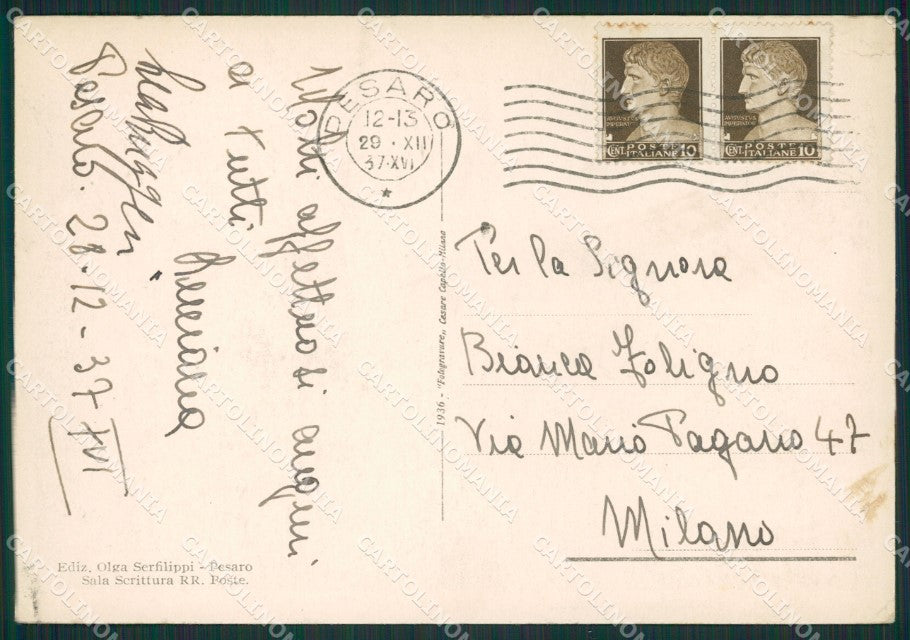 Molti affettuosi auguri
a tutti
Pesaro. 28-12-37 XVI
PESARO
12-13
29 · XII
37·XVI
AVGVSTVS
IMPERATOR
CENT. POSTE ITALIANE 10
AVGVSTVS
IMPERATOR
CENT. POSTE ITALIANE 10
Per la Signora
Bianca Foligno
Via Mario Pagano 47
Milano
1936 - "Fotogravure,, Cesare Capello-Milano
Ediz. Olga Serfilippi - Pesaro
Sala Scrittura RR. Poste.
CARTOLINOMANIA